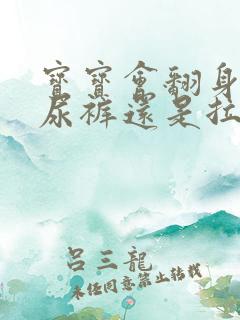 寶寶會翻身
尿褲還是拉
呂三龍
未經同意禁止轉載